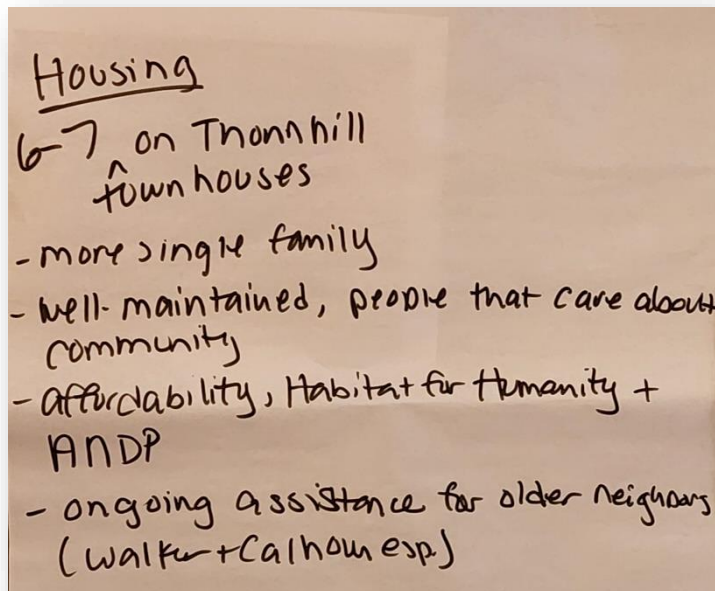 Housing
6-7 ^ on Thonnhill
townhouses
- more single family
- well-maintained, people that care about
community
- affordability, Habitat for Humanity +
ANDP
- ongoing assistance for older neighbors
(Walker + Calhoun esp)